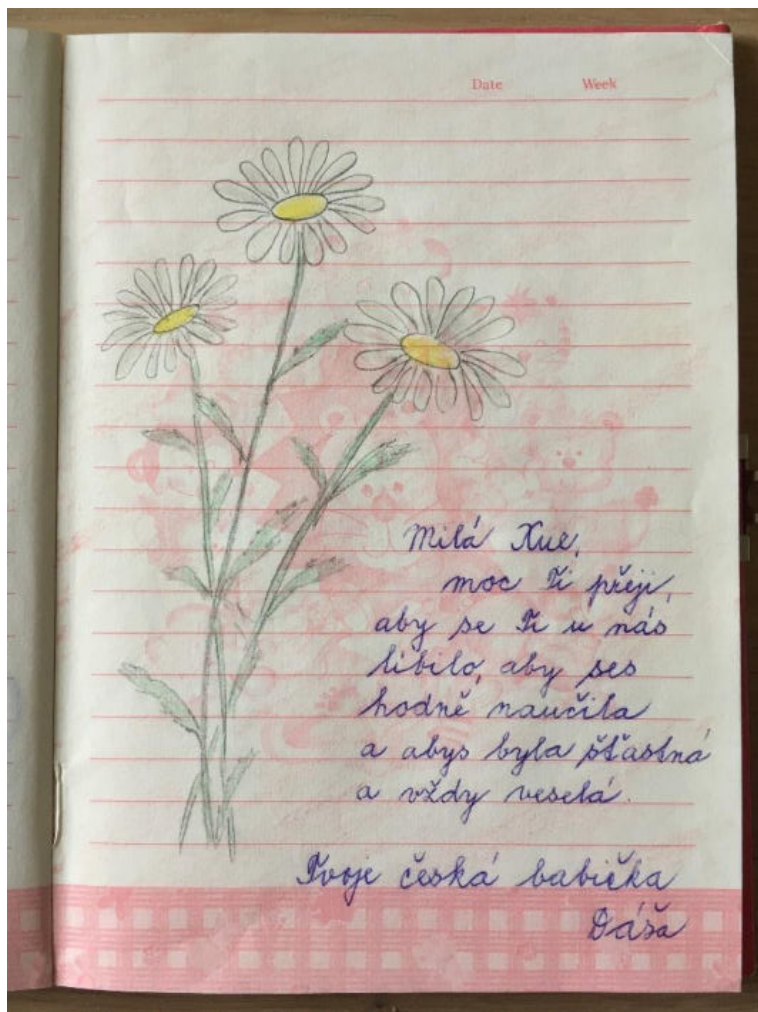 Date Week
Milá Xue,
moc Ti přeji,
aby se Ti u nás
líbilo, aby ses
hodně naučila
a abys byla šťastná
a vždy veselá.
Tvoje česká babička
Dáša